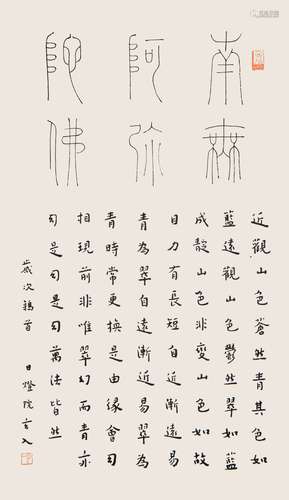 南無
阿弥
陀佛
近觀山色蒼然青其色如
藍遠觀山色鬱然翠如藍
成靛山色非變山色如故
目力有長短自近漸遠易
青為翠自遠漸近易翠為
青時常更換是由緣會幻
相現前非唯翠幻而青亦
幻是幻是幻萬法皆然
歲次鶉首 日燈院玄入